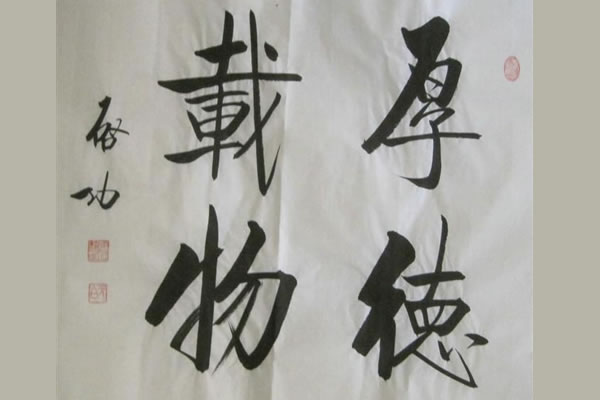 厚德
載物
啓功